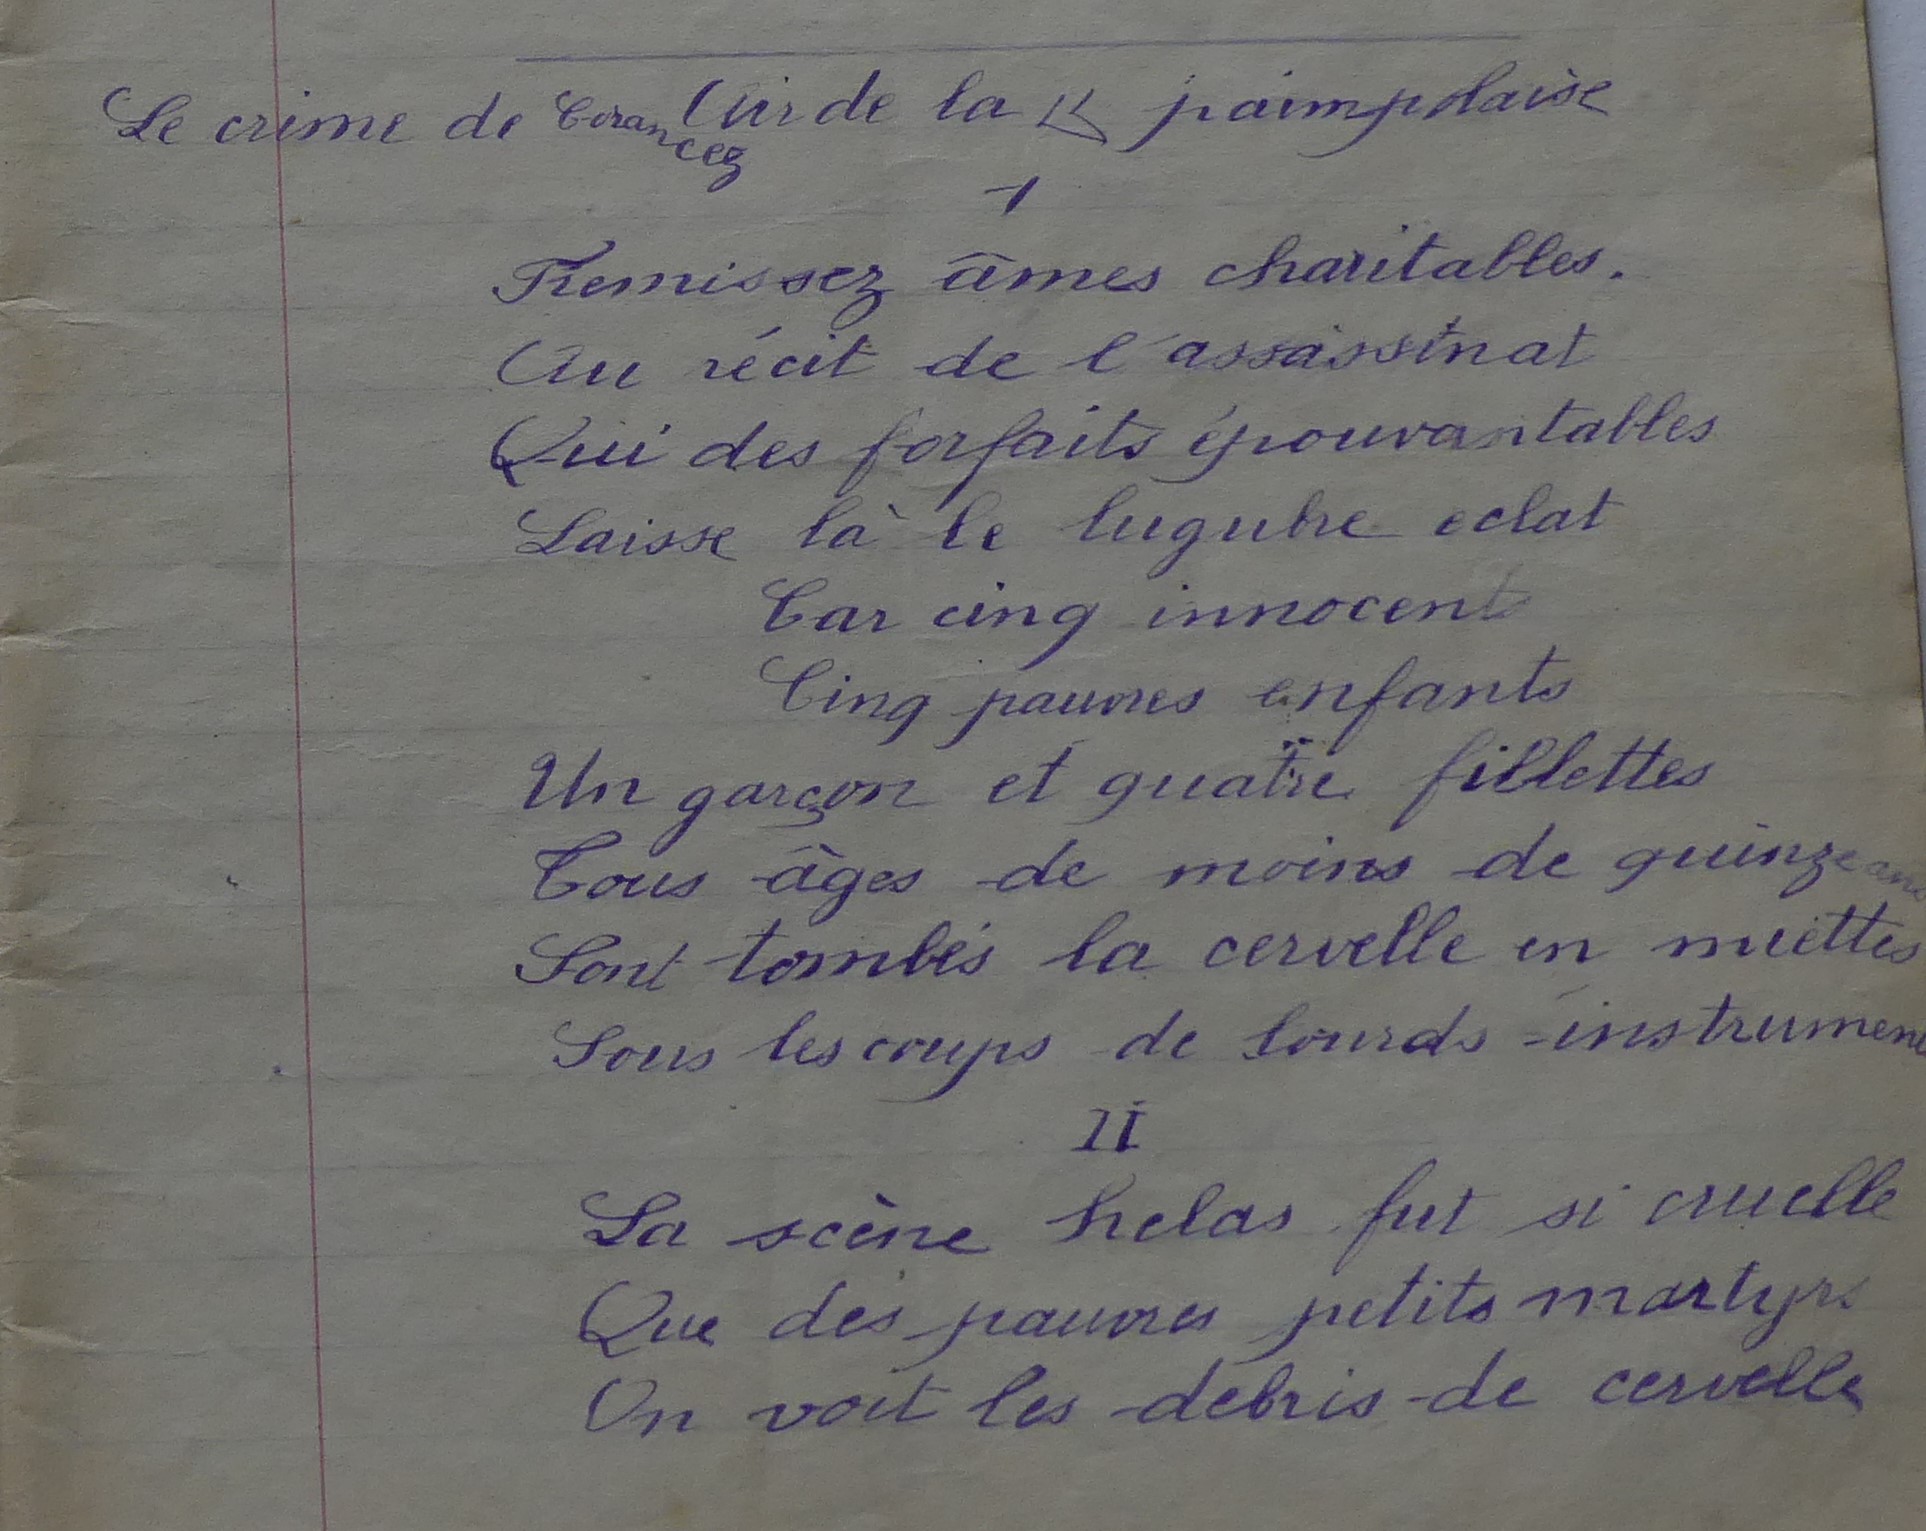 Le crime de Corancez Air de la paimpolaise
I
Fremissez âmes charitables.
Au récit de l'assassinat
Qui des forfaits épouvantables
Laisse là le lugubre eclat
Car cinq innocent
Cinq pauvres enfants
Un garçon et quatre fillettes
Tous âges de moins de quinze ans
Sont tombés la cervelle en miettes
Sous les coups de lourds instrument
II
La scène helas fut si cruelle
Que des pauvres petits martyrs
On voit les debris de cervelle